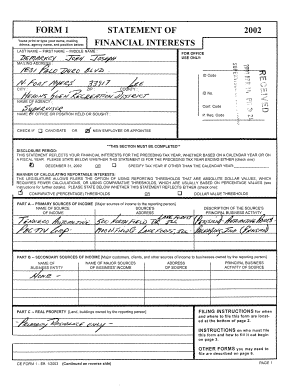 FORM 1 STATEMENT OF 2002
Please print or type your name, mailing address, agency name, and position below:
FINANCIAL INTERESTS
LAST NAME -- FIRST NAME -- MIDDLE NAME
FOR OFFICE USE ONLY:
John Joseph
MAILING ADDRESS
Blvd
N. Fort Myers 33917 Lee
CITY ZIP COUNTY
Recreation District
NAME OF AGENCY
Supervisor
NAME OF OFFICE OR POSITION HELD OR SOUGHT
ID Code
ID No.
Conf. Code
P. Req. Code
RECEIVED
CHECK IF CANDIDATE OR NEW EMPLOYEE OR APPOINTEE
**THIS SECTION MUST BE COMPLETED**
DISCLOSURE PERIOD:
THIS STATEMENT REFLECTS YOUR FINANCIAL INTERESTS FOR THE PRECEDING TAX YEAR, WHETHER BASED ON A CALENDAR YEAR OR ON
A FISCAL YEAR. PLEASE STATE BELOW WHETHER THIS STATEMENT IS FOR THE PRECEDING TAX YEAR ENDING EITHER (check one):
DECEMBER 31, 2002 OR SPECIFY TAX YEAR IF OTHER THAN THE CALENDAR YEAR:
MANNER OF CALCULATING REPORTABLE INTERESTS:
THE LEGISLATURE ALLOWS FILERS THE OPTION OF USING REPORTING THRESHOLDS THAT ARE ABSOLUTE DOLLAR VALUES, WHICH
REQUIRES FEWER CALCULATIONS, OR USING COMPARATIVE THRESHOLDS, WHICH ARE USUALLY BASED ON PERCENTAGE VALUES (see
instructions for further details). PLEASE STATE BELOW WHETHER THIS STATEMENT REFLECTS EITHER (check one):
COMPARATIVE (PERCENTAGE) THRESHOLDS OR DOLLAR VALUE THRESHOLDS
PART A -- PRIMARY SOURCES OF INCOME (Major sources of income to the reporting person)
NAME OF SOURCE OF INCOME SOURCE'S ADDRESS DESCRIPTION OF THE SOURCE'S PRINCIPAL BUSINESS ACTIVITY
Tenneco Automotive Lake Forest
Pactiv Corp
PART B -- SECONDARY SOURCES OF INCOME (Major customers, clients, and other sources of income to businesses owned by the reporting person)
NAME OF BUSINESS ENTITY NAME OF MAJOR SOURCES OF BUSINESS' INCOME ADDRESS OF SOURCE PRINCIPAL BUSINESS ACTIVITY OF SOURCE
None
PART C -- REAL PROPERTY (Land, buildings owned by the reporting person)
Primary Residence only
FILING INSTRUCTIONS for when and where to file this form are located at the bottom of page 2.
INSTRUCTIONS on who must file this form and how to fill it out begin on page 3.
OTHER FORMS you may need to file are described on page 6.
CE FORM 1 - Eff. 1/2003 (Continued on reverse side) PAGE 1